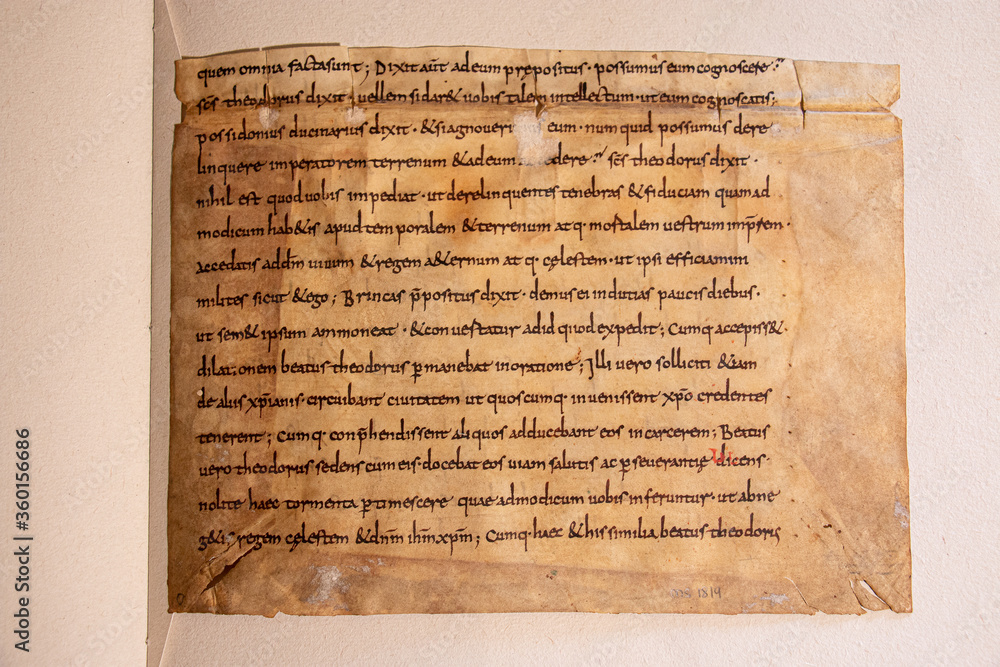 quem omnia facta sunt; Dixit aūt adeum prepositus · possumus eum cognoscere?
scs̄ theodorus dixit · uellem si dar& uobis talem intellectum · ut eum cognoscatis;
possidonius ducinarius dixit · & si agnoueri eum · num quid possumus dere
linquere imperatorem terrenum & adeum dere? scs̄ theodorus dixit ·
nihil est quod uobis impediat · ut derelinquentes tenebras & fiduciam quam ad
modicum hab&is apud temporalem & terrenum atq· mortalem uestrum
accedatis addm̄ uiuum & regem a&ernum atq· celestem · ut ipsi efficiamini
milites sicut & ego; Brincas p̄positus dixit · demus ei indutias paucis diebus ·
ut sem& ipsum ammoneat · & conuertatur adid quod expedit; Cumq· accepiss&
dilationem beatus theodorus p̱manebat inoratione; Illi uero solliciti &iam
de aliis xp̄ianis · circuibant ciuitatem ut quoscumq· inuenissent xp̄o credentes
tenerent; Cumq· conp̄hendissent aliquos adducebant eos incarcerem; Beatus
uero theodorus sedens cum eis · docebat eos uiam salutis ac p̱seuerantię dicens ·
nolite haec tormenta p̱timescere quae admodicum uobis inferuntur · ut abne
g&is regem cęlestem & dnm̄ ihm̄ xpm̄; Cumq· haec & his similia beatus theodorus
1819
Adobe Stock | #360156686